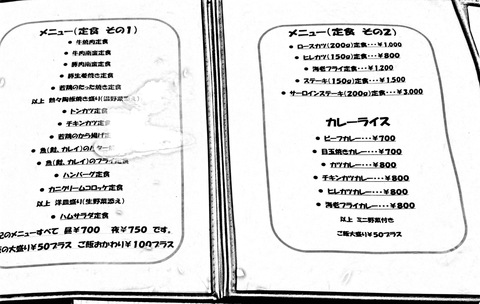 メニュー(定食 その1)
• 牛焼肉定食
• 牛肉南蛮定食
• 豚肉南蛮定食
• 豚生姜焼き定食
• 若鶏のたった焼き定食
以上 熱々陶板焼き盛り(温野菜添え)
• トンカツ定食
• チキンカツ定食
• 若鶏のから揚げ定食
• 魚(鮭、カレイ)の
• 魚(鮭、カレイ)のフライ定食
• ハンバーグ定食
• カニクリームコロッケ定食
以上 洋皿盛り(生野菜添え)
• ハムサラダ定食
のメニューすべて 昼¥700 夜¥750 です。
の大盛り¥50プラス ご飯おかわり¥100プラス
メニュー(定食 その2)
• ロースカツ(200g)定食・・・¥1,000
• ヒレカツ(150g)定食・・・¥800
• 海老フライ定食・・・¥1,200
• ステーキ(150g)定食・・・¥1,500
• サーロインステーキ(200g)定食・・・¥3,000
カレーライス
• ビーフカレー・・・¥700
• 目玉焼きカレー・・・¥700
• カツカレー・・・¥800
• チキンカツカレー・・・¥800
• ヒレカツカレー・・・¥800
• 海老フライカレー・・・¥800
以上 ミニ野菜付き
ご飯大盛り¥50プラス